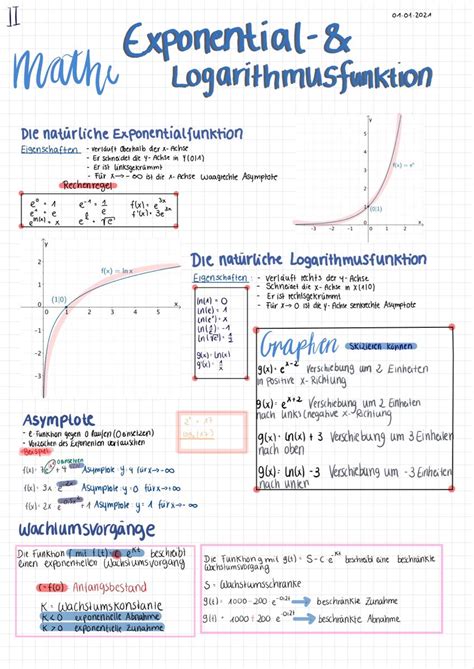 II
01.01.2021
Mathe
Exponential- &
Logarithmusfunktion
Die natürliche Exponentialfunktion
Eigenschaften: - verläuft oberhalb der x-Achse
- Er schneidet die y-Achse in Y(0|1)
- Er ist linksgekrümmt
- Für x → -∞ ist die x-Achse waagrechte Asymptote
Rechenregel
e⁰ = 1
f(x) = eˣ
(0|1)
f(x) = ln x
(1|0)
Die natürliche Logarithmusfunktion
Eigenschaften: - verläuft rechts der y-Achse
- Schneidet die x-Achse in X(1|0)
- Er ist rechtsgekrümmt
- Für x → 0 ist die y-Achse senkrechte Asymptote
ln(1) = 0
ln(e) = 1
g(x) = ln(x)
Graphen skizzieren können
g(x) = eˣ⁻² Verschiebung um 2 Einheiten
in positive x-Richtung
g(x) = eˣ⁺² Verschiebung um 2 Einheiten
nach links (negative x-Richtung)
g(x) = ln(x) + 3 Verschiebung um 3 Einheiten
nach oben
g(x) = ln(x) - 3 Verschiebung um -3 Einheiten
nach unten
Asymptote
- e Funktion gegen 0 laufen
- Vorzeichen des Exponenten
Beispiel
Asymptote y = 4 für x → -∞
Asymptote y = 0 für x → +∞
Asymptote y = 1 für x → +∞
Wachtumsvorgänge
Die Funktion f mit f(t) = c · eᵏᵗ beschreibt
einen exponentiellen Wachstumsvorgang
c = f(0) Anfangsbestand
K = Wachstumskonstante
K < 0 exponentielle Abnahme
K > 0 exponentielle Zunahme
Die Funktion g mit g(t) = S - c · eᵏᵗ beschreibt eine beschränkte
Wachstumsvorgang
S = Wachstumsschranke
→ beschränkte Zunahme
→ beschränkte Abnahme